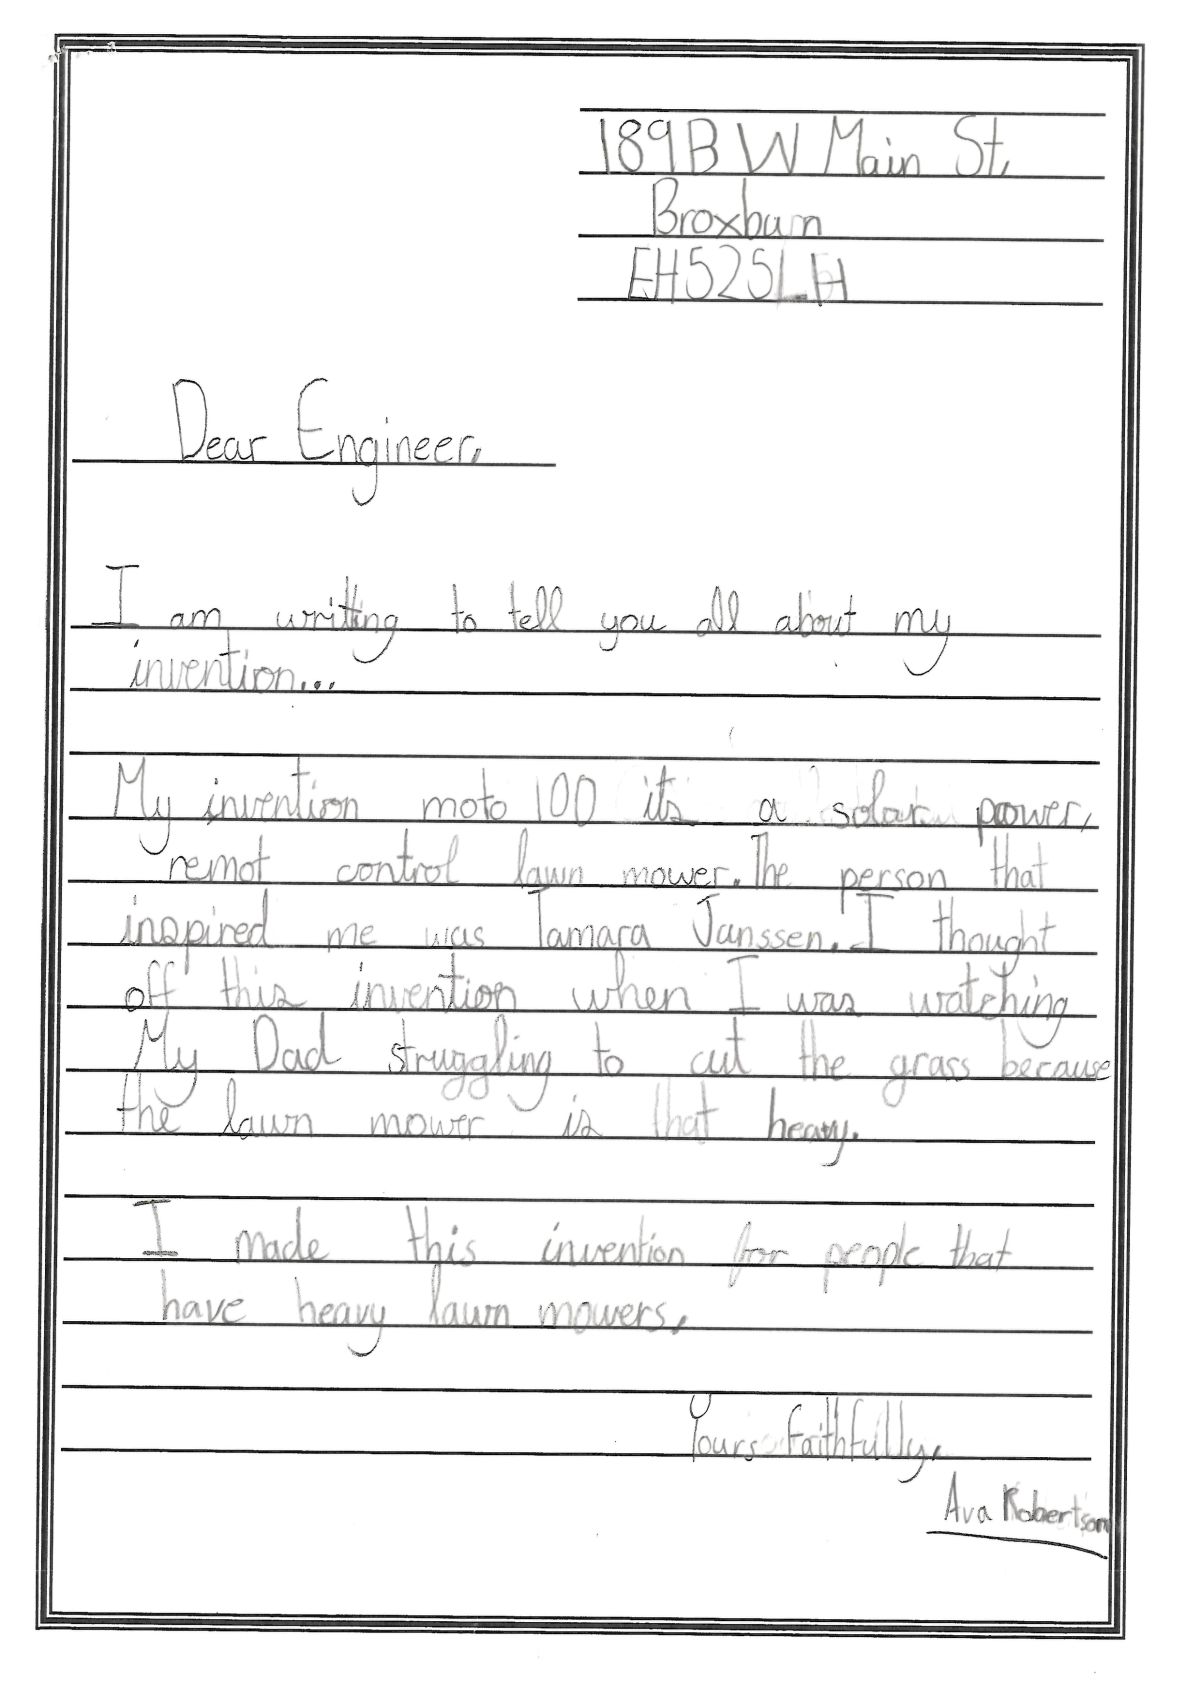 189B W Main St,
Broxburn
EH525LH
Dear Engineer,
I am writting to tell you all about my
invention...
My invention moto 100 its a solar power,
remot control lawn mower. The person that
inspired me was Tamara Janssen. I thought
off this invention when I was watching
My Dad struggling to cut the grass because
the lawn mower is that heavy.
I made this invention for people that
have heavy lawn mowers.
Yours faithfully,
Ava Robertson